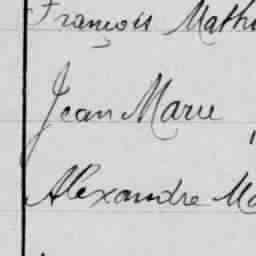 François Math
Jean Marie
Alexandre Ma